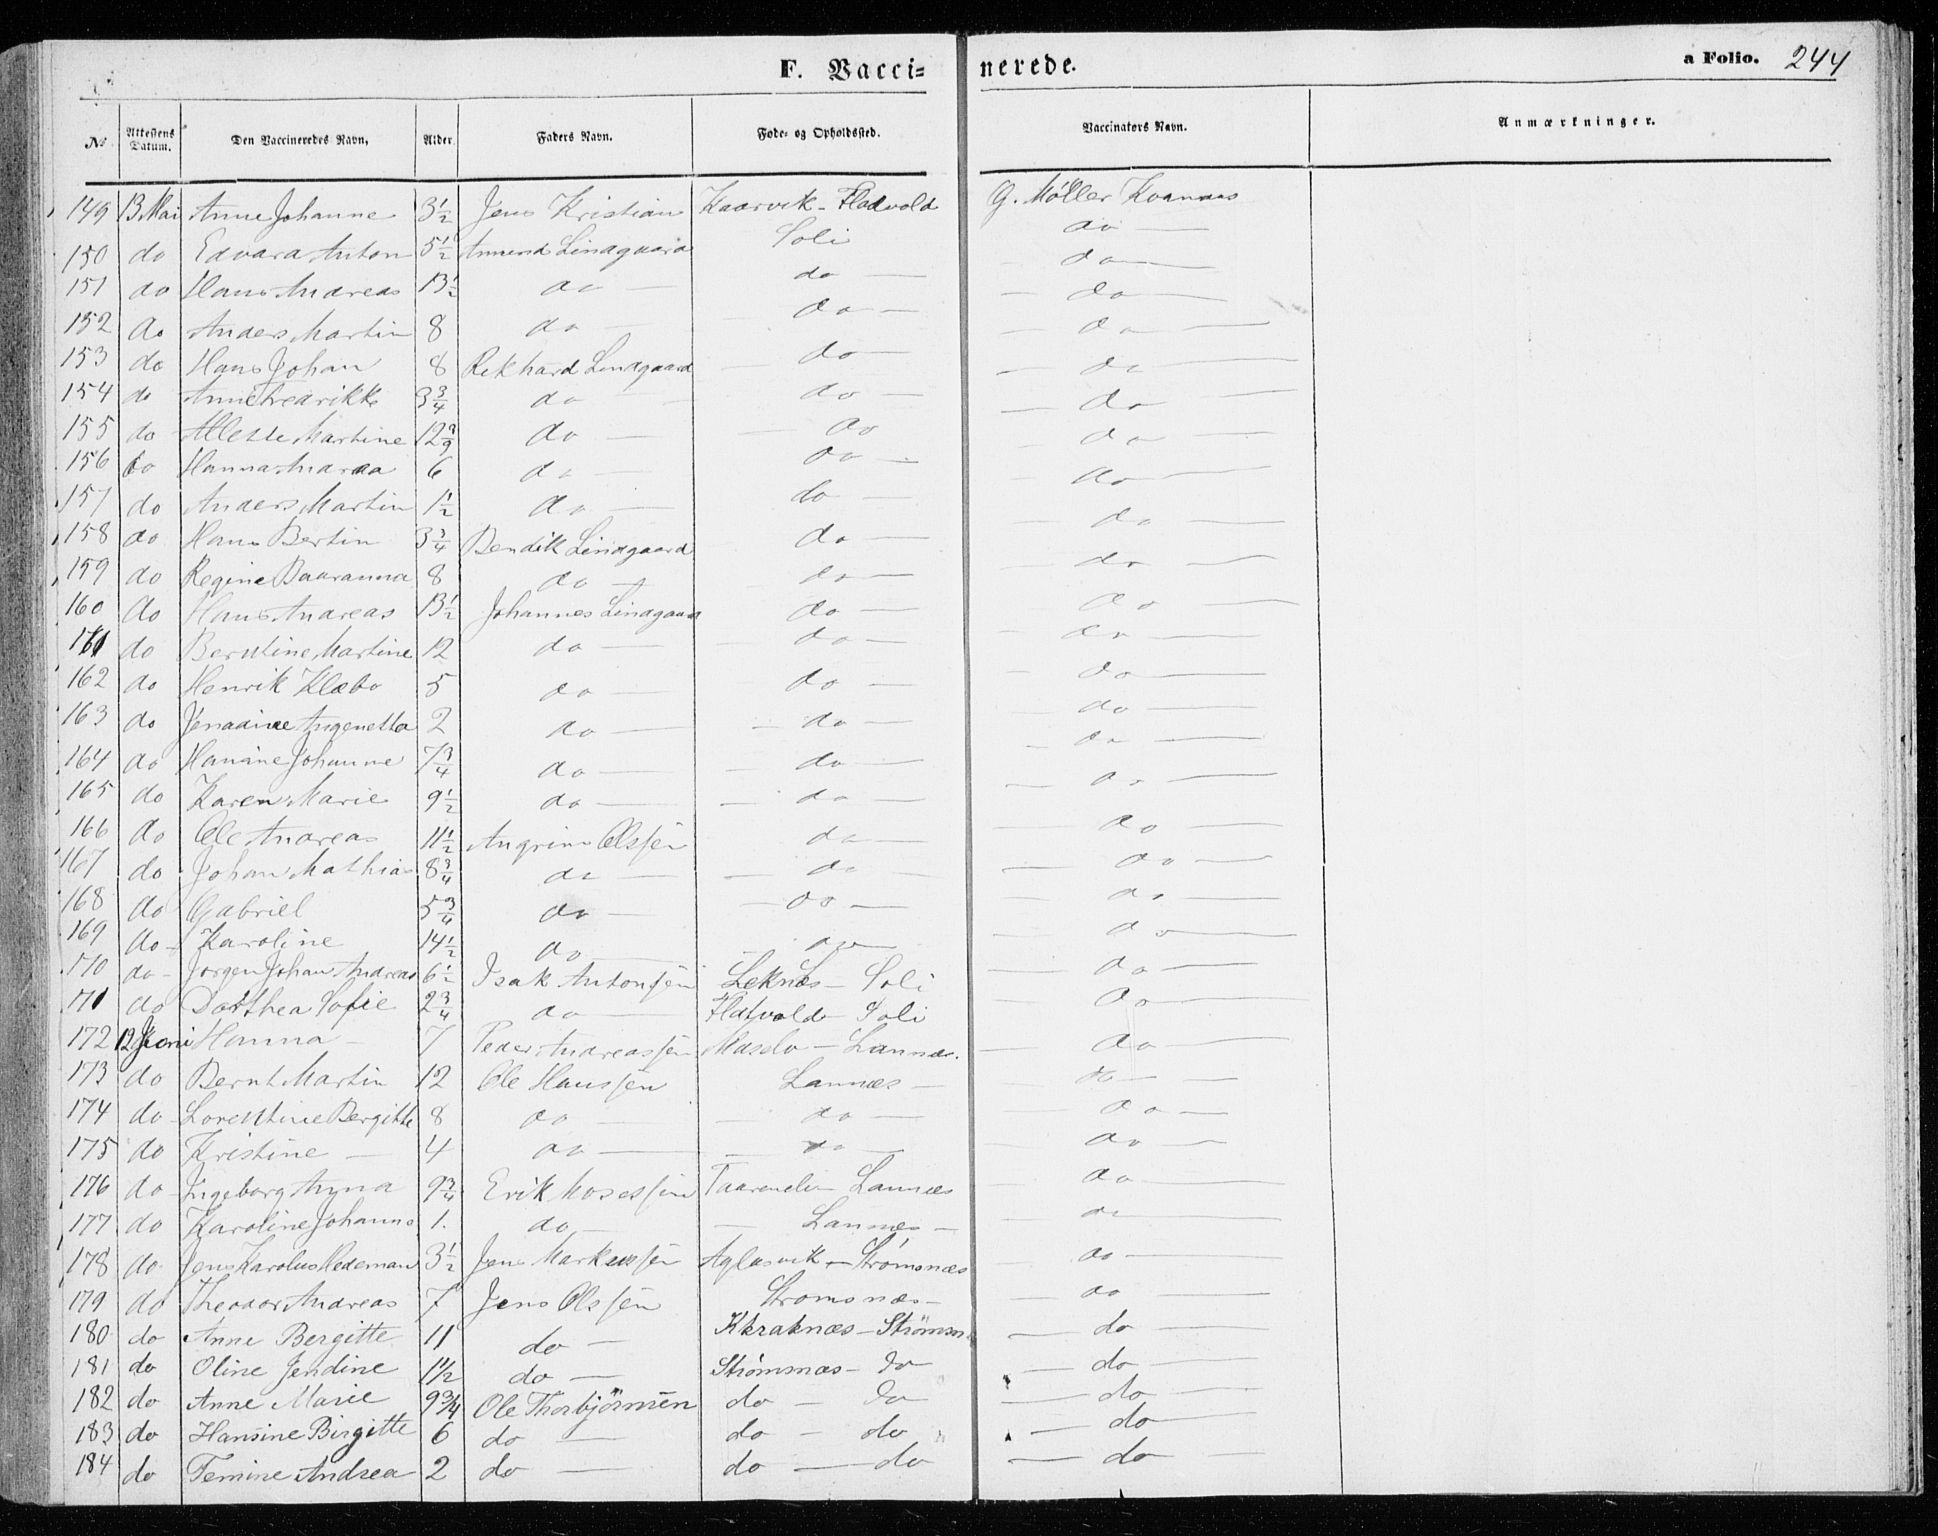 F. Vacci= nerede. a Folio. 244
No Attestens Datum. Den Vaccineredes Navn, Alder Faders Navn. Føde- og Opholdssted. Vaccinators Navn. Anmærkninger.
149 13 Mai Anne Johanne 3 1/2 Jens Kristian Kaarvik - Flatvold G. Møller Kvannaas
150 do Edvard Anton 5 1/2 Amund Lindgaard Soli do
151 do Hans Andreas 13 1/2 do do do
152 do Anders Martin 8 do do do
153 do Hans Johan 8 Rikhard Lindgaard do do
154 do Anne Fredrikke 3 3/4 do do do
155 do Martine 12 do do do
156 do Hanna Andrea 6 do do do
157 do Anders Martin 1 1/2 do do do
158 do Hans Bertin 3 3/4 Bendik Lindgaard do do
159 do Regine Baaranna 8 do do do
160 do Hans Andreas 13 1/2 Johannes Lindgaard do do
161 do Berntine Martine 12 do do do
162 do Henrik Klæbo 5 do do do
163 do Jenadine Angenetta 2 do do do
164 do Hansine Johanne 7 3/4 do do do
165 do Karen Marie 9 1/2 do do do
166 do Ole Andreas 11 1/2 Angrim Olssen do do
167 do Johan Mathias 8 3/4 do do do
168 do Gabriel 5 3/4 do do do
169 do Karoline 14 1/2 do do do
170 do Jørgen Johan Andreas 6 1/2 Isak Antonsen Leknes - Soli do
171 do Dorthea Sofie 2 3/4 do Flatvold - Soli do
172 12 Juni Hanna 7 Peder Andreassen Maselv - Lannæs. do
173 do Bernt Martin 12 Ole Hanssen Lannæs do
174 do Lorentine Bergitte 8 do do do
175 do Kristine 4 do do do
176 do Ingeborg Anna 9 3/4 Erik Mosessen Taarenelv - Lannæs do
177 do Karoline Johanne 1. do Lannæs do
178 do Jens Karolus Hedeman 3 1/2 Jens Markussen Aglasvik - Strømsnæs do
179 do Theodor Andreas 7 Jens Olssen Stromsnæs do
180 do Anne Bergitte 11 do Kkraknæs - Strømsn do
181 do Oline Jendine 1 1/2 do Strømsnæs - do do
182 do Anne Marie 9 3/4 Ole Thorbjörnsen do - do do
183 do Hansine Birgitte 6 do do - do do
184 do Femine Andrea 2 do do - do do